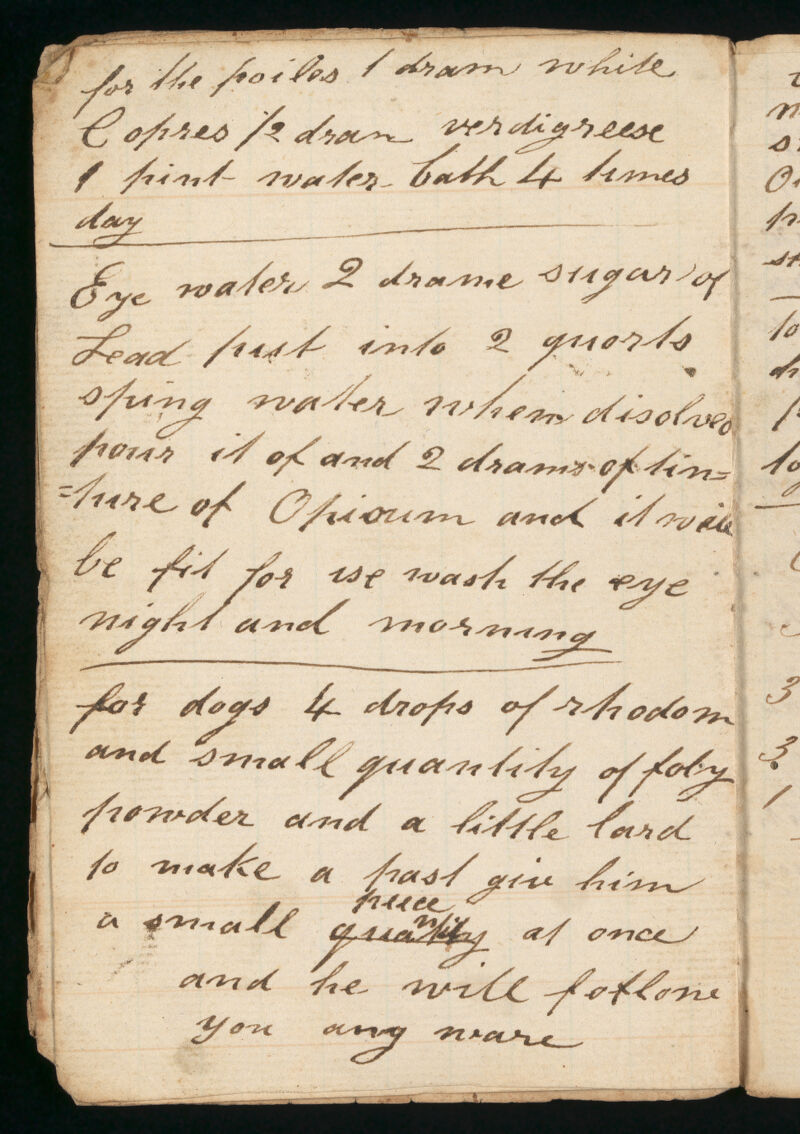 for the poiles 1 dram white
Copres 1/2 dram verdigreese
1 pint water bath 4 times
day
Eye water 2 drame sugar of
Lead put into 2 quorts
sping water when disolved
pour it of and 2 drams of tin=
=ture of Opioum and it will
be fit for use wash the eye
night and morning
for dogs 4 drops of rhodom
and small quantity of foby
powder and a little lard
to make a past giv him
a small peece at once
and he will fotlone
you any ware